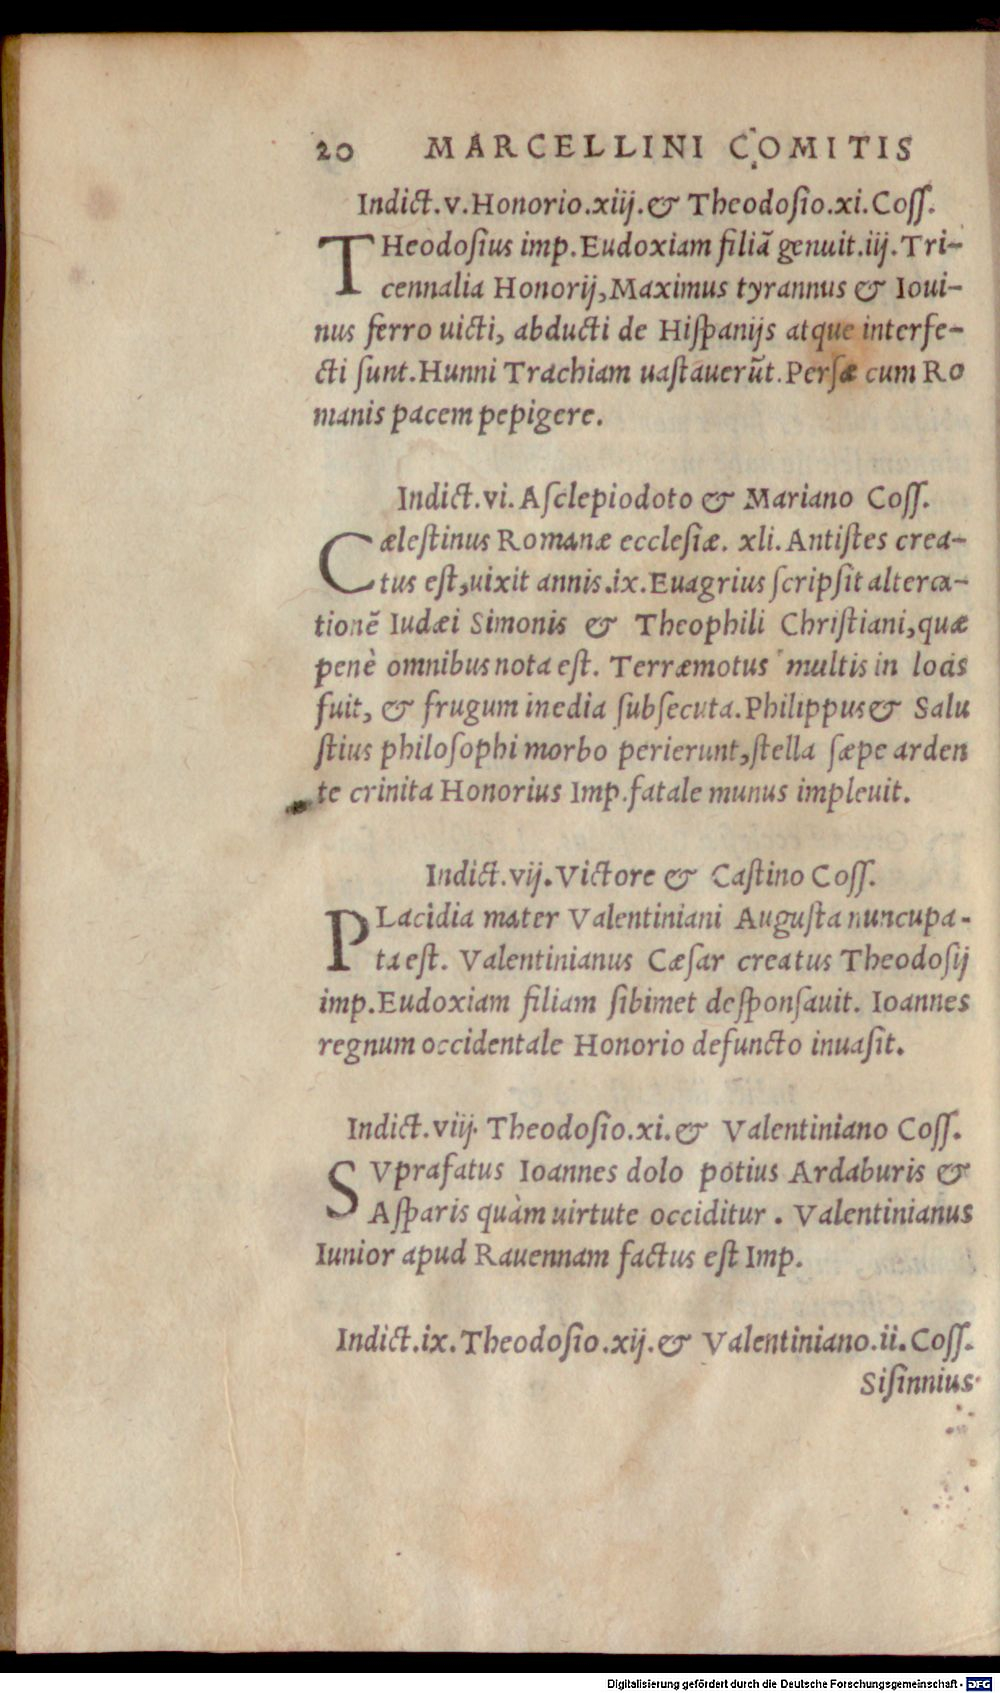 20 MARCELLINI COMITIS
Indict.v.Honorio.xiij.& Theodoſio.xi.Coſſ.
THeodoſius imp.Eudoxiam filiã genuit.iij.Tri-
cennalia Honorij,Maximus tyrannus & Ioui-
nus ferro uicti, abducti de Hiſpanijs atque interfe-
cti ſunt.Hunni Trachiam uaſtauerũt.Perſæ cum Ro
manis pacem pepigere.
Indict.vi.Aſclepiodoto & Mariano Coſſ.
Cæleſtinus Romanæ eccleſiæ. xli.Antiſtes crea-
tus eſt,uixit annis.ix.Euagrius ſcripſit alterca-
tionẽ Iudæi Simonis & Theophili Chriſtiani,quæ
penè omnibus nota eſt. Terræmotus multis in locis
fuit, & frugum inedia ſubſecuta.Philippus & Salu
ſtius philoſophi morbo perierunt,ſtella ſæpe arden
te crinita Honorius Imp.fatale munus impleuit.
Indict.vij.Victore & Caſtino Coſſ.
PLacidia mater Valentiniani Auguſta nuncupa-
ta eſt. Valentinianus Cæſar creatus Theodoſij
imp.Eudoxiam filiam ſibimet deſponſauit. Ioannes
regnum occidentale Honorio defuncto inuaſit.
Indict.viij. Theodoſio.xi.& Valentiniano Coſſ.
SVprafatus Ioannes dolo potius Ardaburis &
Aſparis quàm uirtute occiditur. Valentinianus
Iunior apud Rauennam factus eſt Imp.
Indict.ix.Theodoſio.xij.& Valentiniano.ii.Coſſ.
Siſinnius
Digitalisierung gefördert durch die Deutsche Forschungsgemeinschaft - DFG